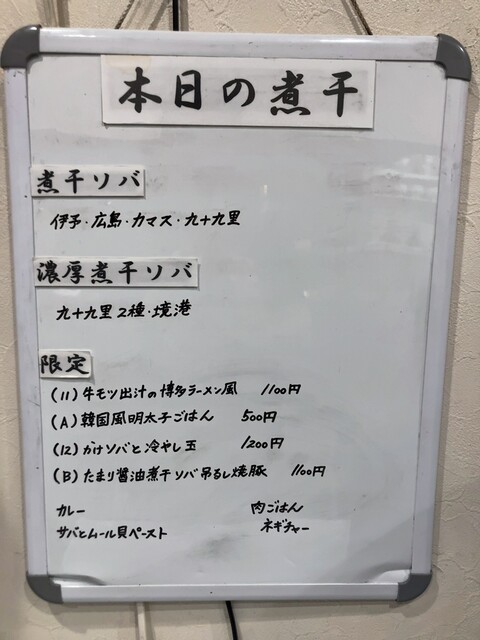 本日の煮干
煮干ソバ
伊予・広島・カマス・九十九里
濃厚煮干ソバ
九十九里2種・境港
限定
(11) 牛モツ出汁の博多ラーメン風 1100円
(A) 韓国風明太子ごはん 500円
(12) かけソバと冷やし玉 1200円
(B) たまり醤油煮干ソバ吊るし焼豚 1100円
カレー 肉ごはん
サバとムール貝ペースト ネギチャー